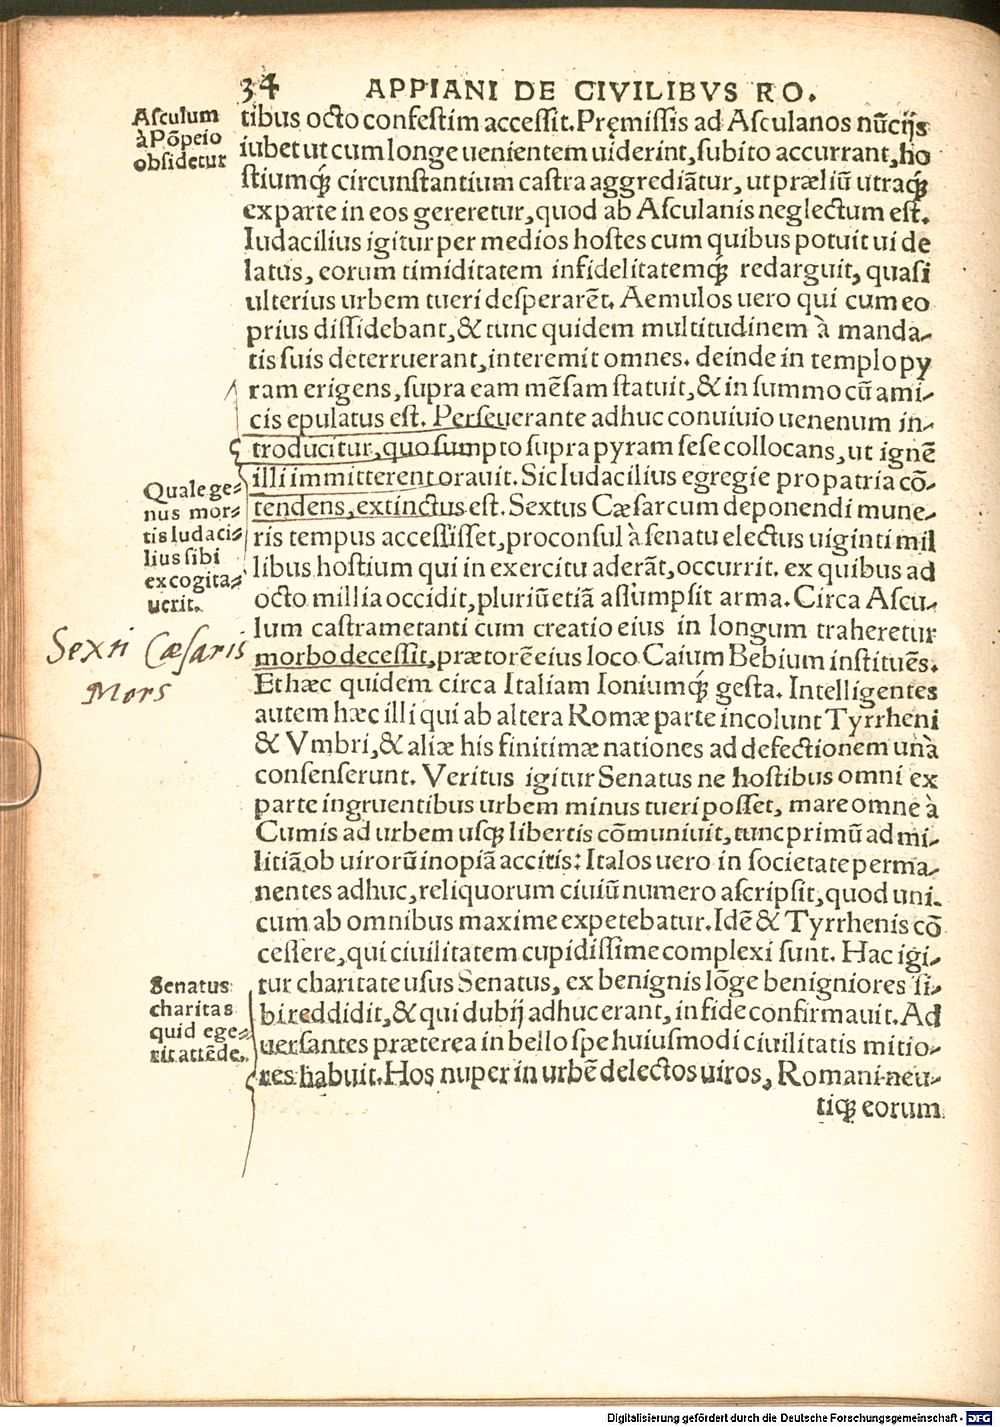 34 APPIANI DE CIVILIBVS RO.
Aſculum
à Põpeio
obſidetur
tibus octo confeſtim acceſſit. Pręmiſſis ad Aſculanos nũcijs
iubet ut cum longe uenientem uiderint, ſubito accurrant, ho
ſtiumq́ꝫ circunſtantium caſtra aggrediãtur, ut præliũ utraq́ꝫ
ex parte in eos gereretur, quod ab Aſculanis neglectum eſt.
Iudacilius igitur per medios hoſtes cum quibus potuit ui de
latus, eorum timiditatem infidelitatemq́ꝫ redarguit, quaſi
ulterius urbem tueri deſperarẽt. Aemulos uero qui cum eo
prius diſſidebant, & tunc quidem multitudinem à manda-
tis ſuis deterruerant, interemit omnes. deinde in templo py
ram erigens, ſupra eam mẽſam ſtatuit, & in ſummo cũ ami-
cis epulatus eſt. Perſeuerante adhuc conuiuio uenenum in-
troducitur, quo ſumpto ſupra pyram ſeſe collocans, ut ignẽ
illi immitterent orauit. Sic Iudacilius egregie pro patria cõ-
tendens, extinctus eſt. Sextus Cæſar cum deponendi mune-
ris tempus acceſſiſſet, proconſul à ſenatu electus uiginti mil
libus hoſtium qui in exercitu aderãt, occurrit. ex quibus ad
octo millia occidit, pluriũ etiã aſſumpſit arma. Circa Aſcu-
lum caſtrametanti cum creatio eius in longum traheretur
morbo deceſſit, prætorẽ eius loco Caium Bebium inſtituẽs.
Et hæc quidem circa Italiam Ioniumq́ꝫ geſta. Intelligentes
autem hæc illi qui ab altera Romæ parte incolunt Tyrrheni
& Vmbri, & aliæ his finitimæ nationes ad defectionem unà
conſenſerunt. Veritus igitur Senatus ne hoſtibus omni ex
parte ingruentibus urbem minus tueri poſſet, mare omne à
Cumis ad urbem uſqꝫ libertis cõmuniuit, tunc primũ ad mi-
litiã ob uirorũ inopiã accitis: Italos uero in ſocietate perma-
nentes adhuc, reliquorum ciuiũ numero aſcripſit, quod uni.
cum ab omnibus maxime expetebatur. Idẽ & Tyrrhenis cõ
ceſſere, qui ciuilitatem cupidiſſime complexi ſunt. Hac igi-
tur charitate uſus Senatus, ex benignis lõge benigniores ſi-
bi reddidit, & qui dubij adhuc erant, in fide confirmauit. Ad
uerſantes præterea in bello ſpe huiuſmodi ciuilitatis mitio-
res habuit. Hos nuper in urbẽ delectos uiros, Romani neu-
tiqꝫ eorum
Quale ge-
nus mor-
tis Iudaci-
lius ſibi
excogita-
uerit.
Sexti Cæſaris
Mors
Senatus
charitas
quid ege-
rit attẽde.
Digitalisierung gefördert durch die Deutsche Forschungsgemeinschaft - DFG